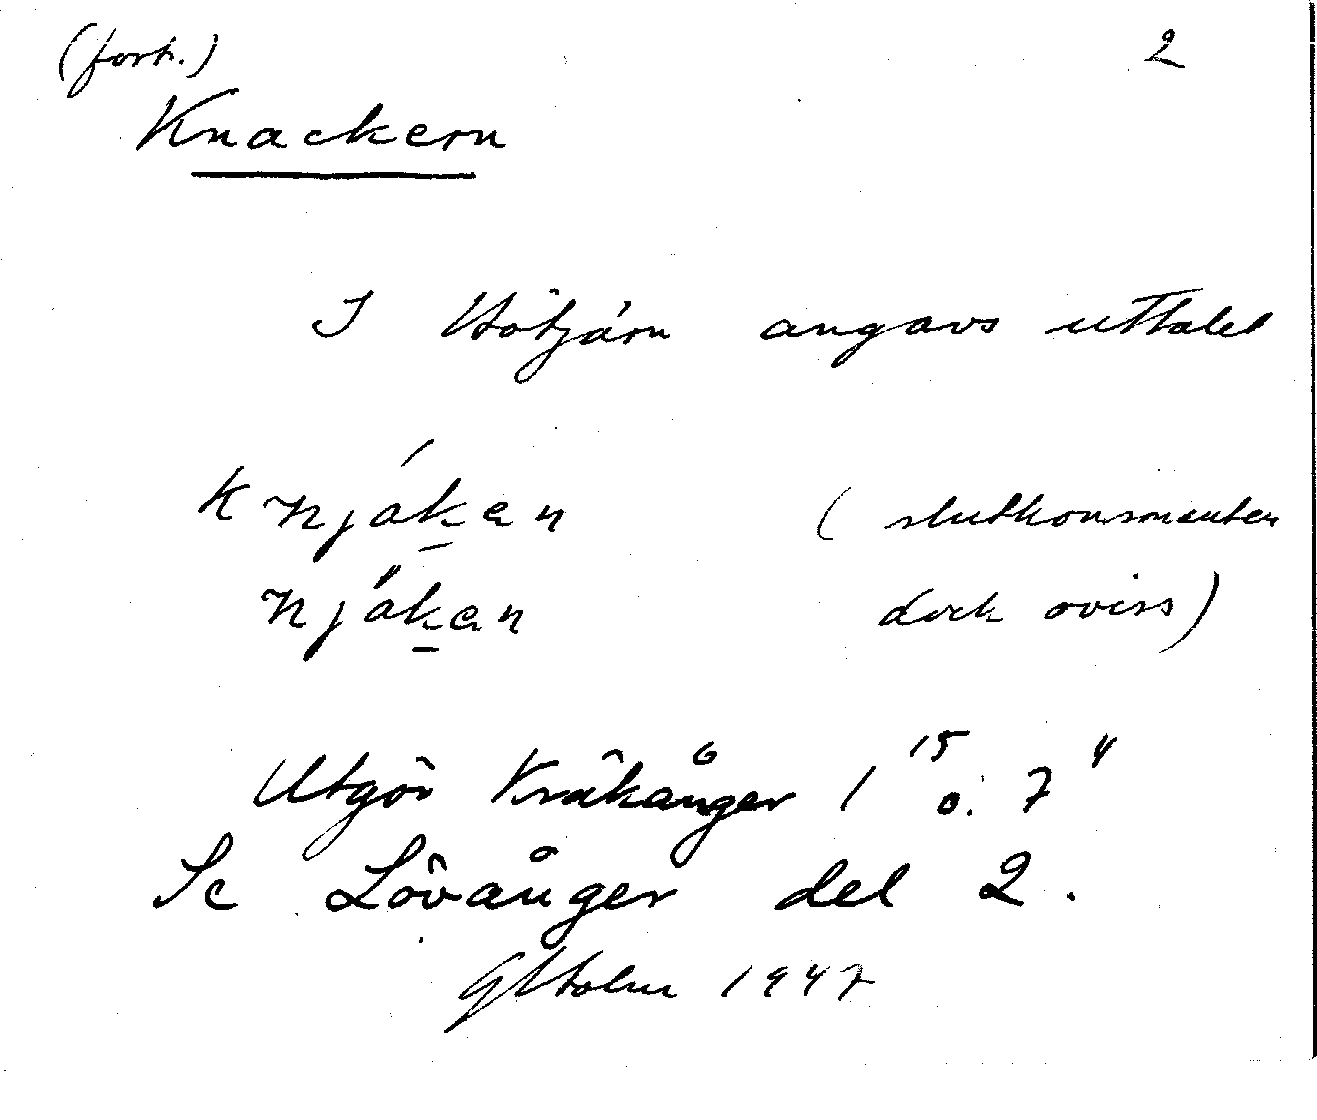 (forts.) 2
Knackern
I Hötjärn angavs uttalet
knjáken (slutkonsonanten
njáken dock oviss)
Utgör Kräkånger 1 15 o. 7 4
Se Lövånger del 2.
GHolm 1947